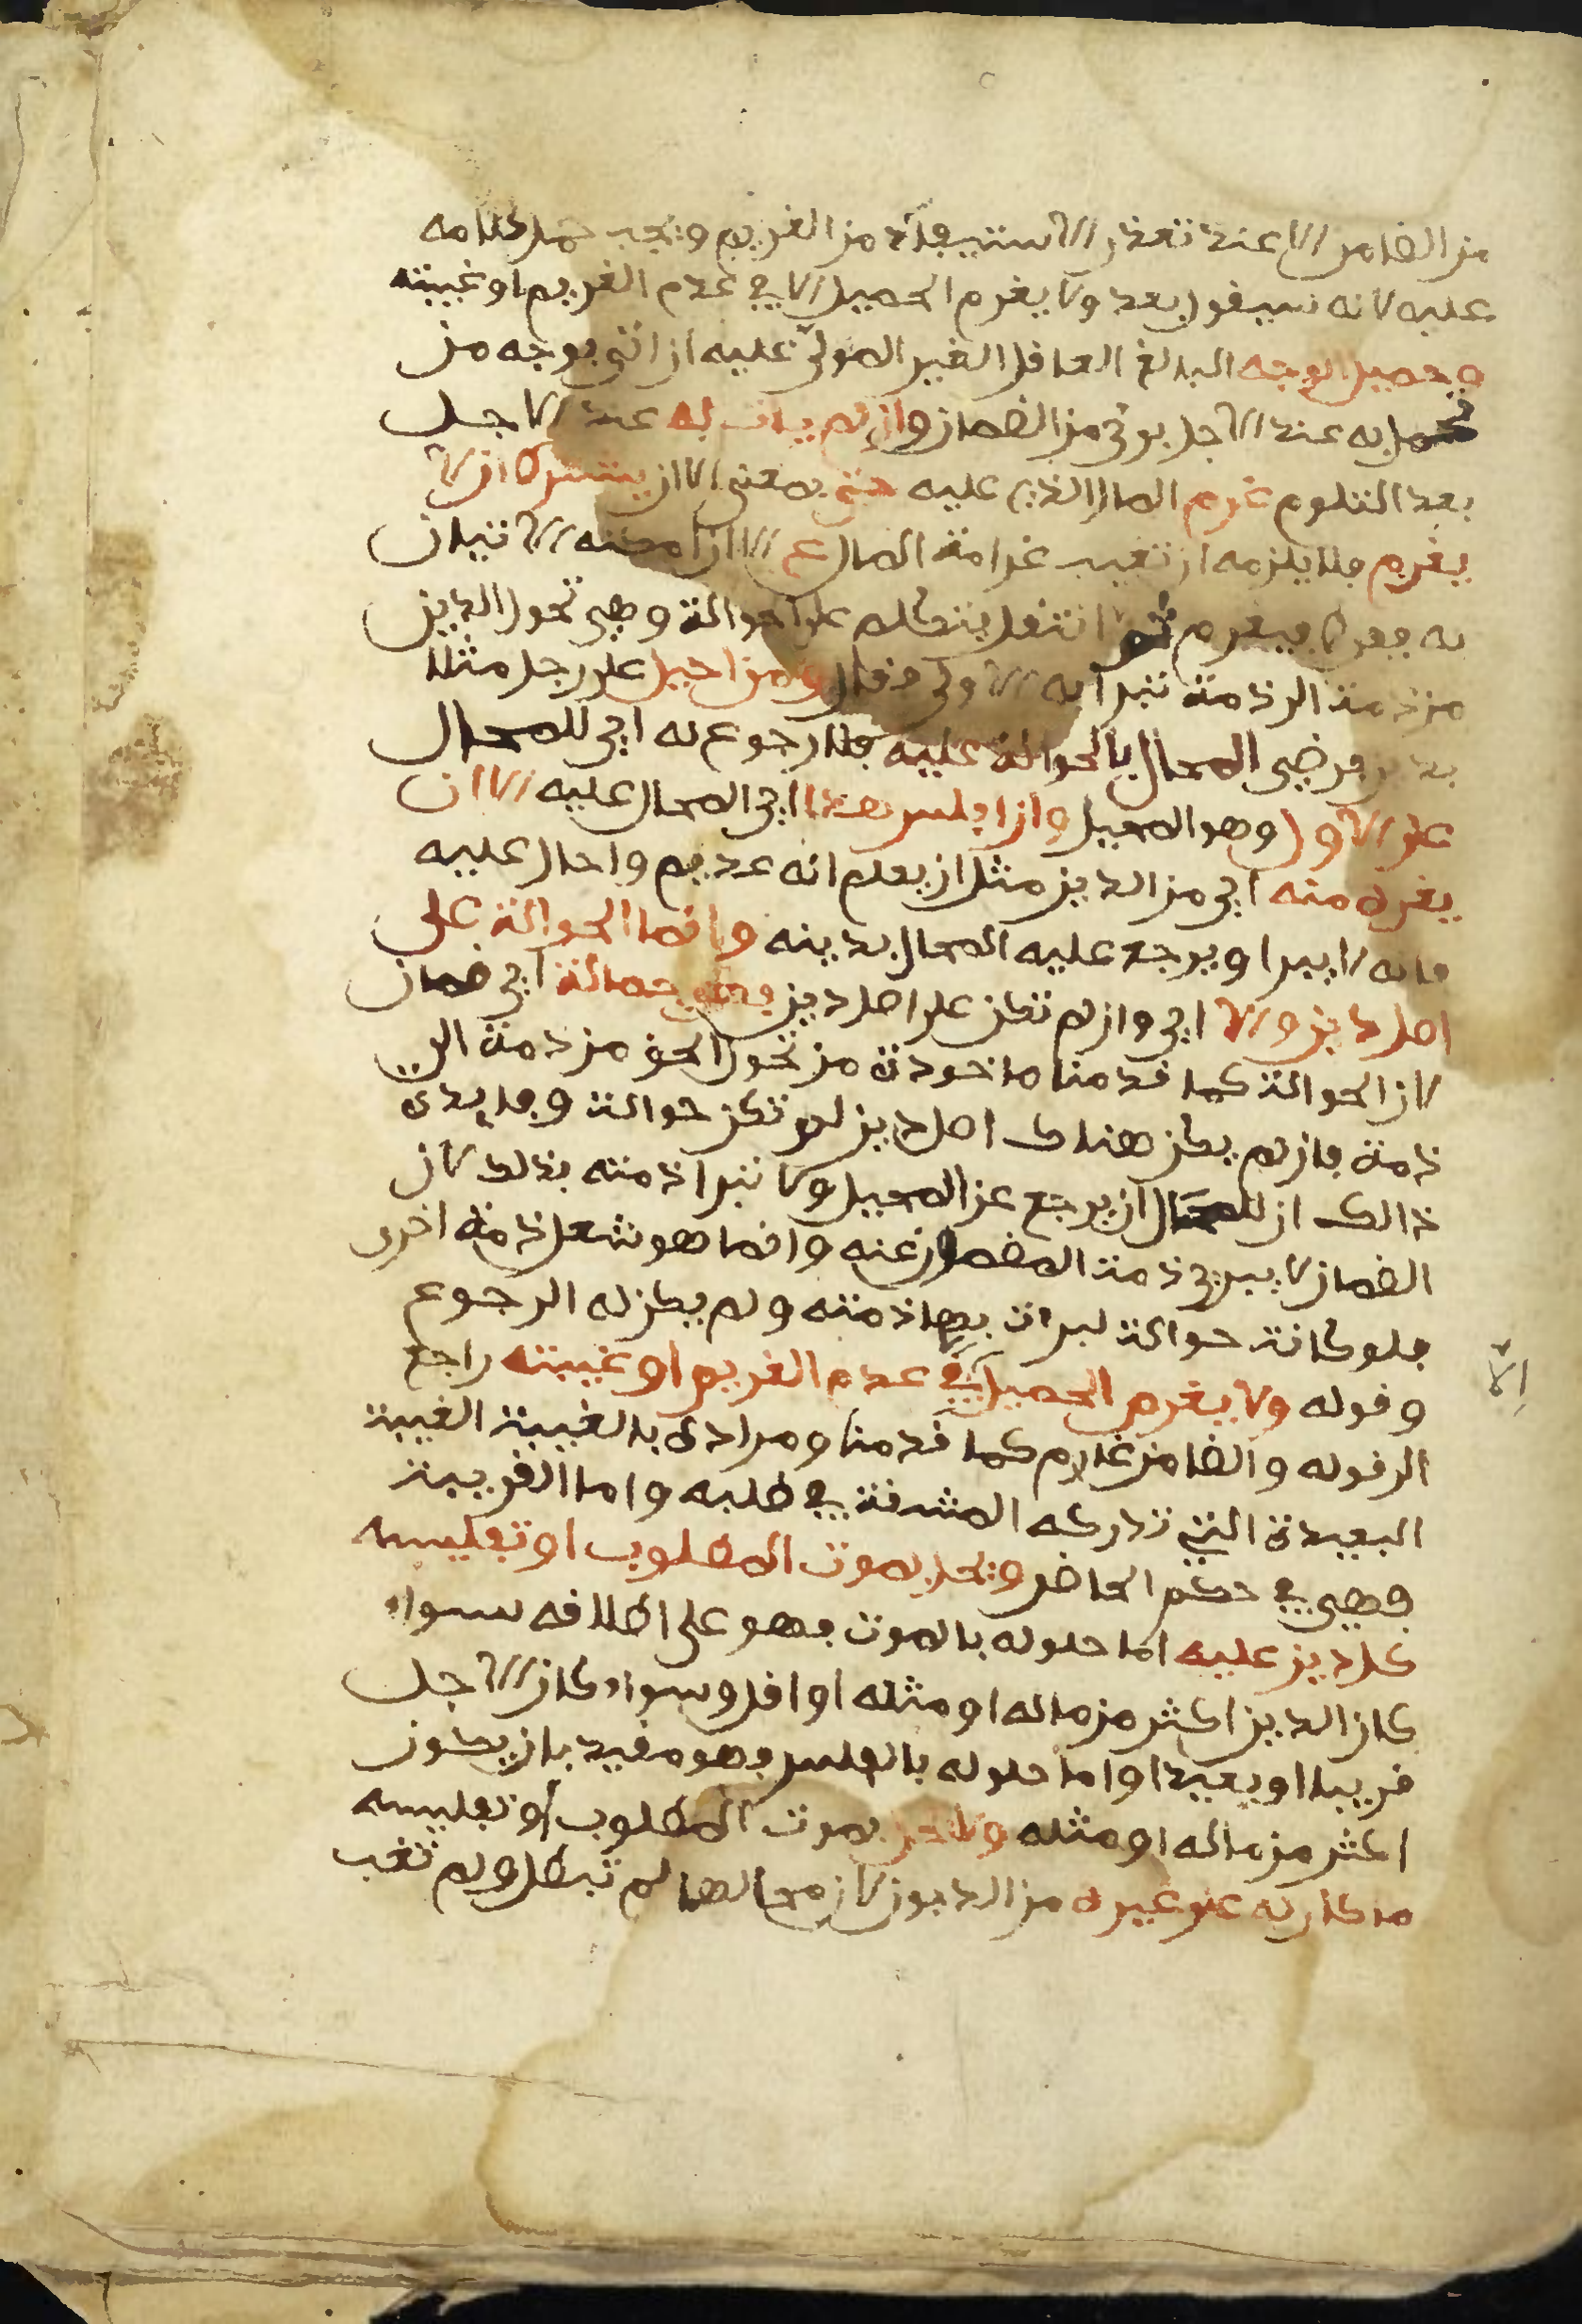 من الضامن الا عند تعذر الاستيفاء من الغريم ويجب حمل كلامه
عليه لانه سيقول بعد ولا يغرم الحميل الا في عدم الغريم او غيبته
وحميل الوجه البالغ العاقل الغير المولى عليه ان اتى بوجه من
تحمل به عند الاجل برئ من الضمان وان لم يات به عند الاجل
بعد التلوم غرم المال الذي عليه حتى بمعنى الا ان يشترط ان لا
يغرم فلا يلزمه ان تغيب غرامة المال ع الا ان امكنه الاتيان
به ففرط فيغرم ثم انتقل يتكلم على الحوالة وهي تحول الدين
من ذمة الى ذمة تبرا به الاولى فقال ومن احيل على رجل مثلا
بدين فرضي المحال بالحوالة عليه فلا رجوع له اي للمحال
على الاول وهو المحيل وان افلس هذا اي المحال عليه الا ان
يغره منه اي من الدين مثل ان يعلم انه عديم واحال عليه
فانه لا يبرا ويرجع عليه المحال بدينه وانما الحوالة على
اصل دين والا اي وان لم تكن على اصل دين فهي حمالة اي ضمان
لان الحوالة كما قدمنا ماخوذة من تحول الحق من ذمة الى
ذمة فان لم يكن هناك اصل دين لم تكن حوالة وفايدة
ذالك ان للمحال ان يرجع عن المحيل ولا تبرا ذمته بذلك لان
الضمان لا يبرئ ذمة المضمون عنه وانما هو شغل ذمة اخرى
فلو كانت حوالة لبرات بها ذمته ولم يكن له الرجوع
وقوله ولا يغرم الحميل في عدم الغريم او غيبته راجع
الا
الى قوله والضامن غارم كما قدمنا ومرادى بالغيبة الغيبة
البعيدة التي تدركه المشقة في طلبه واما القريبة
فهي في حكم الحاضر ويحل بموت المطلوب او تفليسه
كل دين عليه اما حلوله بالموت فهو على اطلاقه سواء
كان الدين اكثر من ماله او مثله او اقل وسواء كان الاجل
قريبا او بعيدا واما حلوله بالفلس فهو مقيد بان يكون
اكثر من ماله او مثله ولا يحل بموت المطلوب او تفليسه
ما كان له على غيره من الديون لان محالها لم تبطل ولم تغب